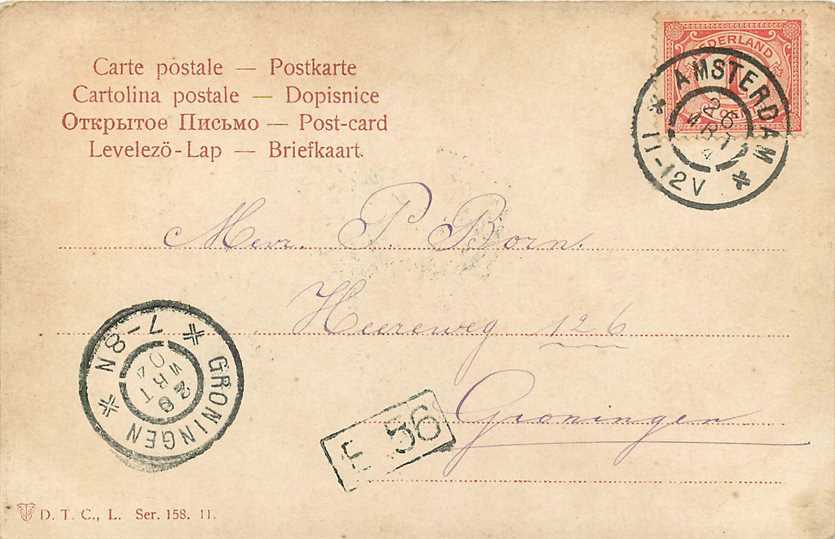 Carte postale — Postkarte
Cartolina postale — Dopisnice
Открытое Письмо — Post-card
Levelező-Lap — Briefkaart.
NEDERLAND
AMSTERDAM
26
MRT
4
11-12V
Mevr. P. Born.
Heereweg 126
Groningen
GRONINGEN
7-8N
26
MRT
04
E 56
D. T. C., L. Ser. 158. 11.